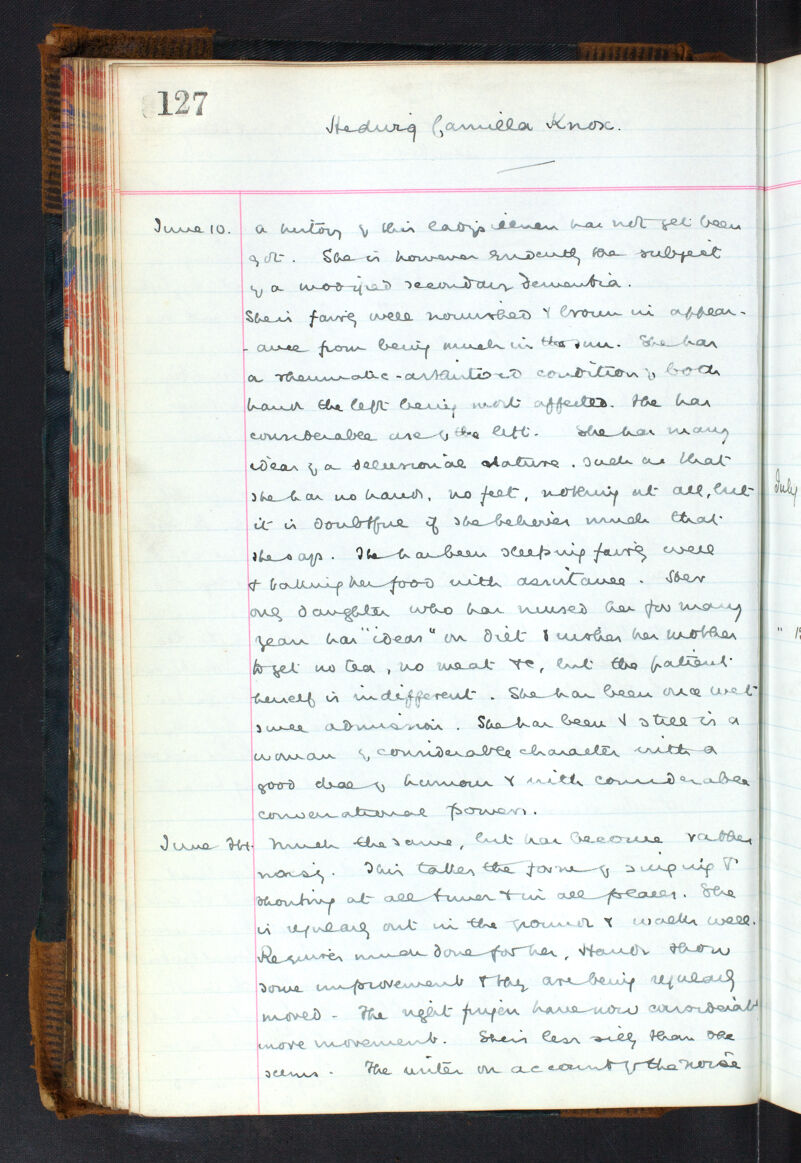 127
Hedwig Camilla Knox.
June 10. a history of this lady's illness has not yet been
got. She is however evidently the subject
of a modified secondary dementia.
She is fairly well nourished & brown in appear-
-ance from being much in the sun. She has
a rheumatic-arthritic condition of both
hands the left being most affected. She has
considerable use of the left. She has many
ideas of a delusional nature. such as that
she has no hands, no feet, nothing at all, but
it is doubtful if she believes much that
she says. She has been sleeping fairly well
& taking her food with assistance. Her
only daughter who has nursed her for many
years has "ideas" on diet & wishes her mother
to get no tea, no meat &c, but the patient
herself is indifferent. She has been once wet
since admission. She has been & still is a
woman of considerable character with a
good deal of humour & with considerable
conversational powers.
June Much the same, but has become rather
noisy. This takes the form of singing &
shouting at all times & in all places. She
is regularly out in the grounds & walks well.
Requires much done for her, Hands show
some improvement & they are being regularly
moved - The right fingers have now considerable
more movement. She is less silly than she
seems. The writer on account of the noise
July
"